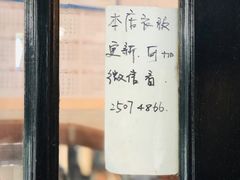 本店衣款
更新.可加
微信看.
25074866.